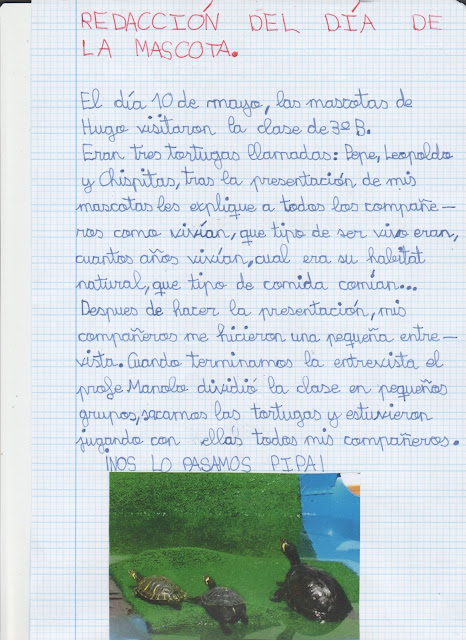 REDACCIÓN DEL DÍA DE
LA MASCOTA.
El día 10 de mayo, las mascotas de
Hugo visitaron la clase de 3º B.
Eran tres tortugas llamadas: Pepe, Leopoldo
y Chispitas, tras la presentación de mis
mascotas les explique a todos los compañe-
ros como vivían, que tipo de ser vivo eran,
cuantos años vivían, cual era su habitat
natural, que tipo de comida comían...
Despues de hacer la presentación, mis
compañeros me hicieron una pequeña entre-
vista. Cuando terminamos la entrevista el
profe Manolo dividió la clase en pequeños
grupos, sacamos las tortugas y estuvieron
jugando con ellas todos mis compañeros.
¡NOS LO PASAMOS PIPA!